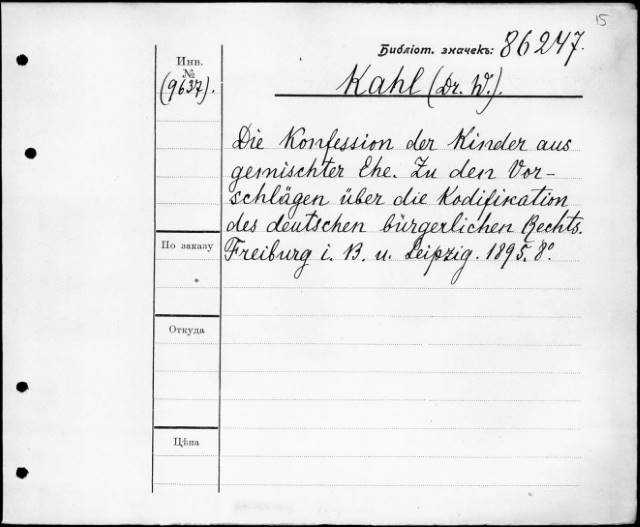 15
Библіот. значекъ: 86247.
Инв.
№
(9637).
Kahl (Dr. W.).
Die Konfession der Kinder aus
gemischter Ehe. Zu den Vor-
schlägen über die Kodifikation
des deutschen bürgerlichen Rechts.
Freiburg i. B. u. Leipzig. 1895. 8°.
По заказу
Откуда
Цѣна